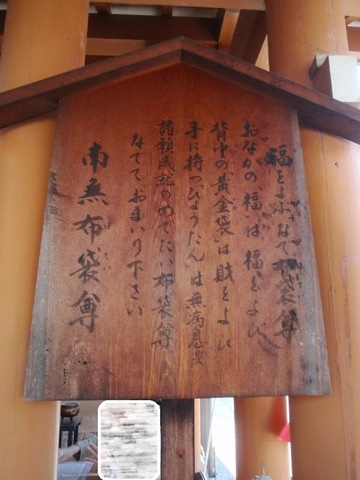 福をよぶなで布袋尊
おなかの「福」は福をよび
背中の「黄金袋」は財をよび
手に持つ「ひょうたん」は無病息災
諸願成就のめでたい布袋尊
なでておまいり下さい
南無布袋尊